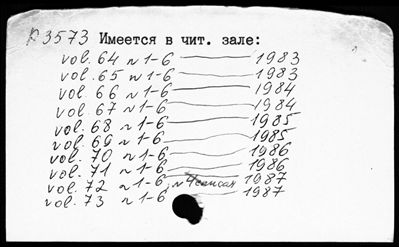 P 3573 Имеется в чит. зале:
vol. 64 n 1-6 — 1983
vol. 65 n 1-6 — 1983
vol. 66 n 1-6 — 1984
vol. 67 n 1-6 — 1984
vol. 68 n 1-6 — 1985
vol. 69 n 1-6 — 1985
vol. 70 n 1-6 — 1986
vol. 71 n 1-6 — 1986
vol. 72 n 1-6, n 4 списан 1987
vol. 73 n 1-6 — 1987